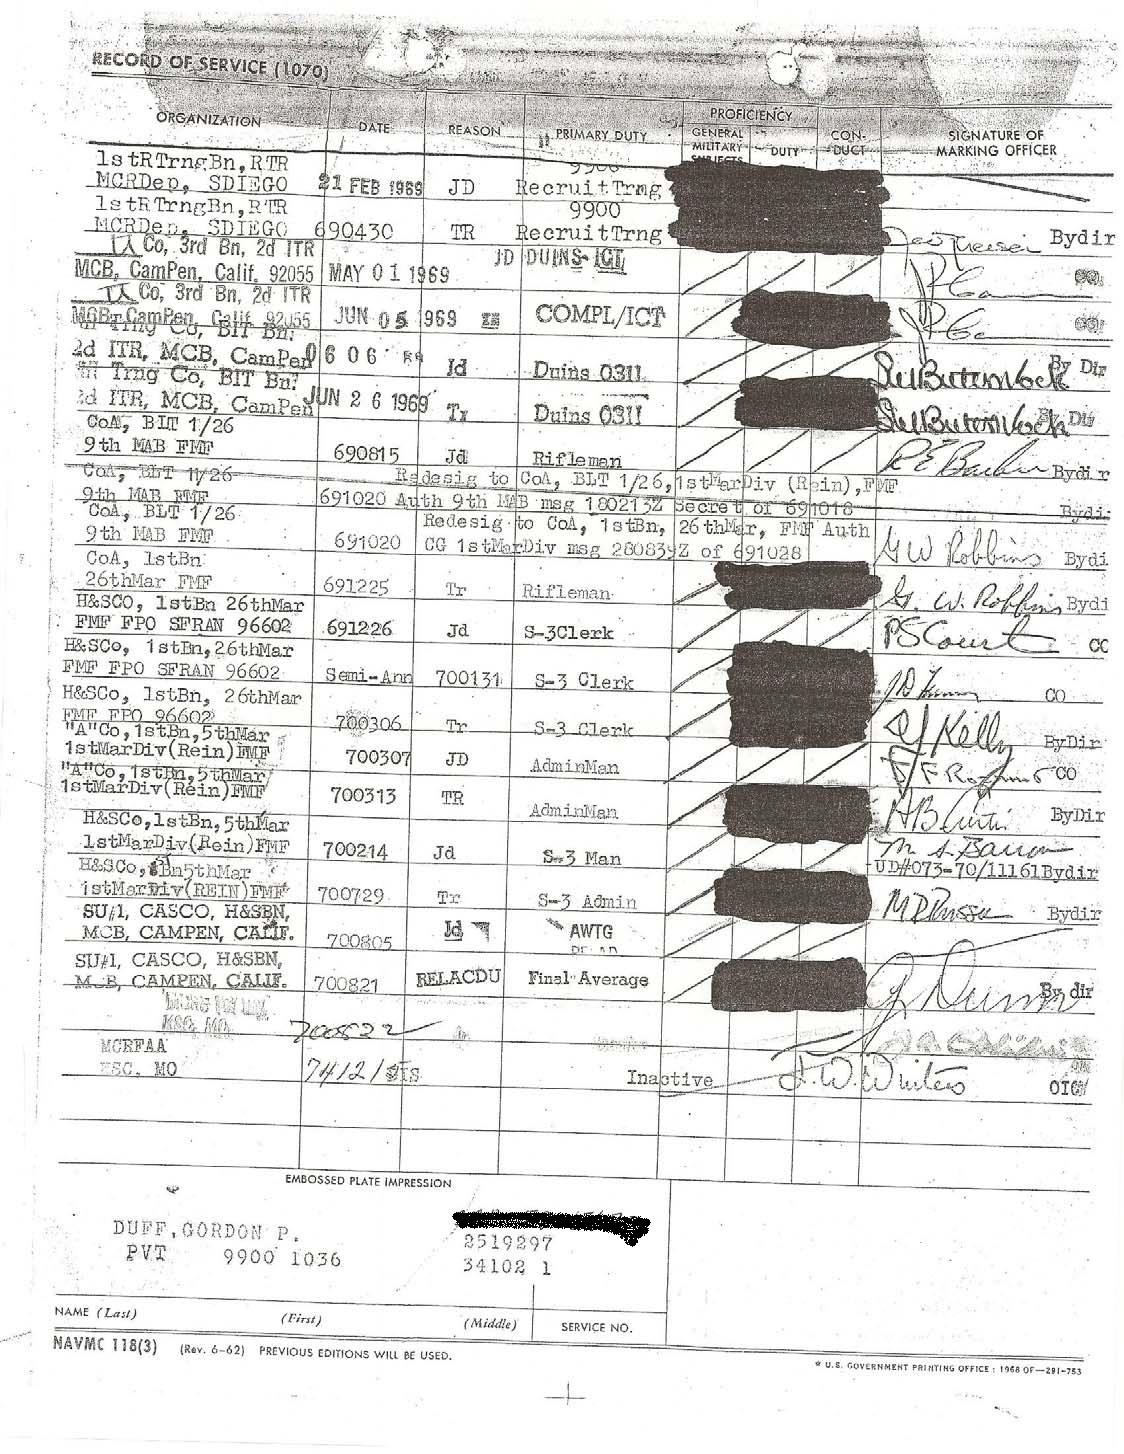 RECORD OF SERVICE (1070)
ORGANIZATION DATE REASON PRIMARY DUTY PROFICIENCY GENERAL MILITARY SUBJECTS DUTY CON-DUCT SIGNATURE OF MARKING OFFICER
1stRTrngBn, RTR 9900
MCRDep, SDIEGO 21 FEB 1969 JD RecruitTrng
1stRTrngBn, RTR 9900
MCRDep, SDIEGO 690430 TR RecruitTrng Bydir
Co, 3rd Bn, 2d ITR JD DUINS-ICT
MCB, CamPen, Calif. 92055 MAY 01 1969 CO
Co, 3rd Bn, 2d ITR
MCB, CamPen, Calif. 92055 JUN 05 1969 COMPL/ICT CO
Trng Co, BIT Bn.
2d ITR, MCB, CamPen 0606 69 Jd Duins 0311 By Dir
Trng Co, BIT Bn.
2d ITR, MCB, CamPen JUN 26 1969 Tr Duins 0311 By Dir
CoA, BLT 1/26
9th MAB FMF 690815 Jd Rifleman Bydir
CoA, BLT 1/26 Redesig to CoA, BLT 1/26, 1stMarDiv (Rein), FMF
9th MAB FMF 691020 Auth 9th MAB msg 180213Z Secret of 691018 Bydi
CoA, BLT 1/26 Redesig to CoA, 1stBn, 26thMar, FMF Auth
9th MAB FMF 691020 CG 1stMarDiv msg 280839Z of 691028 G W Robbins Bydi
CoA, 1stBn
26thMar FMF 691225 Tr Rifleman G. W. Robbins Bydi
H&SCO, 1stBn 26thMar
FMF FPO SFRAN 96602 691226 Jd S-3Clerk PS Court CO
H&SCo, 1stBn,26thMar
FMF FPO SFRAN 96602 Semi-Ann 700131 S-3 Clerk CO
H&SCo, 1stBn, 26thMar
FMF FPO 96602 700306 Tr S-3 Clerk Kelly ByDir
"A"Co,1stBn,5thMar
1stMarDiv(Rein)FMF 700307 JD AdminMan CO
"A"Co,1stBn,5thMar
1stMarDiv(Rein)FMF 700313 TR AdminMan HB Curtis ByDir
H&SCo,1stBn,5thMar
1stMarDiv(Rein)FMF 700214 Jd S-3 Man UD#073-70/11161Bydir
H&SCo, Bn5thMar
1stMarDiv(REIN)FMF 700729 Tr S-3 Admin Bydir
SU#1, CASCO, H&SBN,
MCB, CAMPEN, CALIF. 700805 Jd AWTG
SU#1, CASCO, H&SBN,
MCB, CAMPEN, CALIF. 700821 RELACDU Final Average By dir
700822
MCRFAA
KSC, MO 7412 Inactive J. W. Winters OIC
EMBOSSED PLATE IMPRESSION
DUFF,GORDON P. 2519297
PVT 9900 1036 34102 1
NAME (Last) (First) (Middle) SERVICE NO.
NAVMC 118(3) (Rev. 6-62) PREVIOUS EDITIONS WILL BE USED.
* U.S. GOVERNMENT PRINTING OFFICE : 1968 OF—291-753